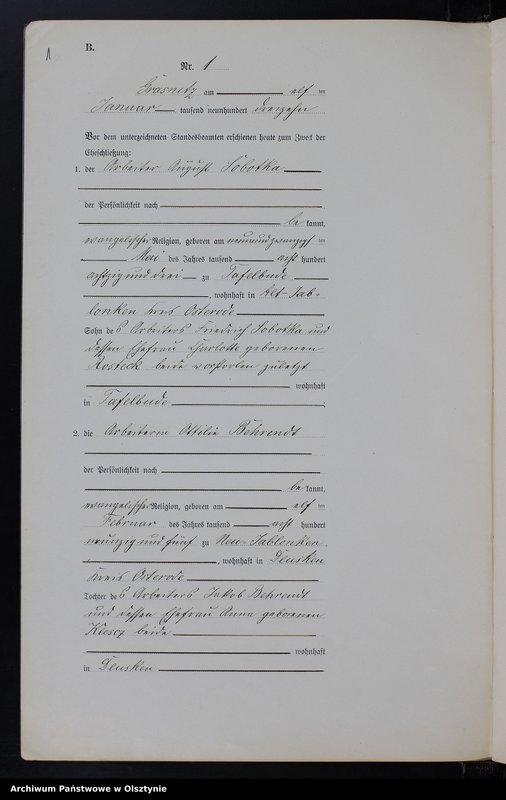 1
B.
Nr. 1
Grasnitz am elf ten
Januar tausend neunhundert dreizehn
Vor dem unterzeichneten Standesbeamten erschienen heute zum Zweck der
Eheschließung:
1. der Arbeiter August Sobotka
der Persönlichkeit nach
be kannt,
evangelischer Religion, geboren am neunundzwanzigs ten
Mai des Jahres tausend acht hundert
achtzig und drei zu Tafelbude
, wohnhaft in Alt-Jab-
lonken Kreis Osterode
Sohn des Arbeiters Friedrich Sobotka und
dessen Ehefrau Charlotte geborenen
Rosteck beide verstorben zuletzt
wohnhaft
in Tafelbude
2. die Arbeiterin Ottilie Behrendt
der Persönlichkeit nach
be kannt,
evangelischer Religion, geboren am elf ten
Februar des Jahres tausend acht hundert
neunzig und fünf zu Neu-Jablonken
, wohnhaft in
Kreis Osterode
Tochter des Arbeiters Jakob Behrendt
und dessen Ehefrau Anna geborenen
beide
wohnhaft
in
Archiwum Państwowe w Olsztynie